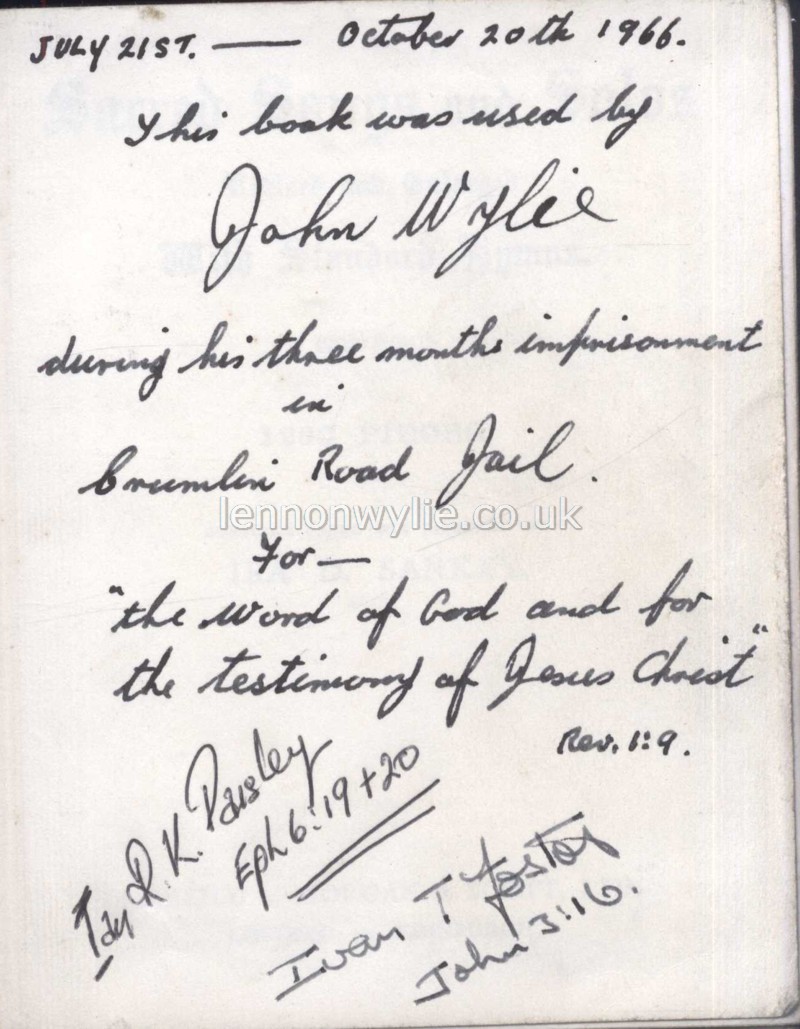 JULY 21ST. — October 20th 1966.
This book was used by
John Wylie
during his three months imprisonment
in
Crumlin Road Jail.
lennonwylie.co.uk
For —
"the word of God and for
the testimony of Jesus Christ"
Rev. 1:9.
Ian R. K. Paisley
Eph 6:19+20
Ivan T Foster
John 3:16.